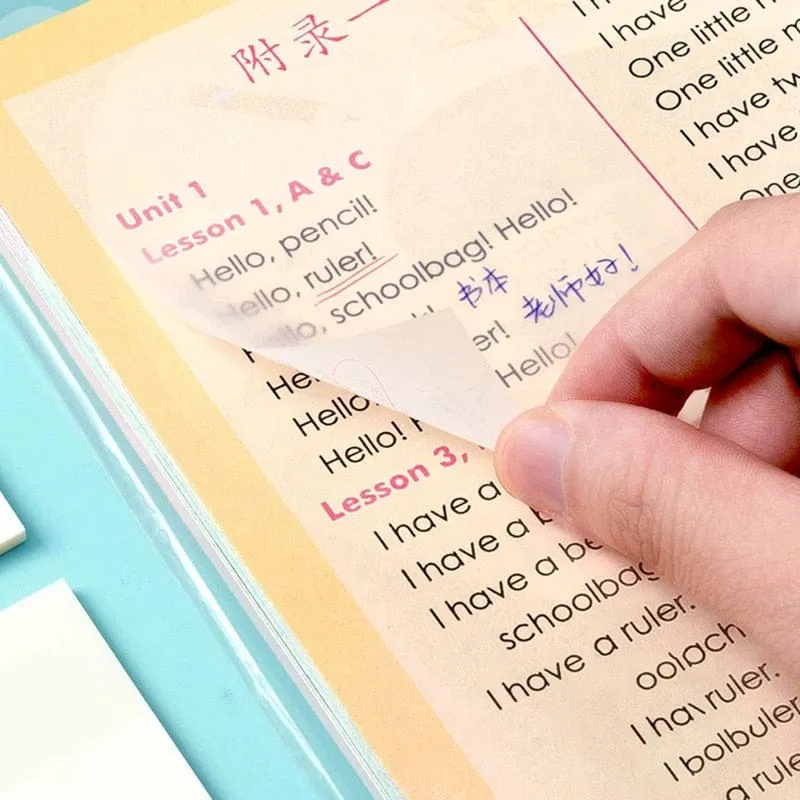 附录一
Unit 1
Lesson 1, A & C
Hello, pencil!
Hello, ruler!
Hello, schoolbag! Hello!
书本
er! 老师好!
He
Hello!
Hello
Hello!
Lesson 3,
I have a
I have a b
I have a be
schoolbag
I have a ruler.
oolach
I ha ruler.
I bolbuler
a rule
I have
One little
One little m
I have tw
I have
One